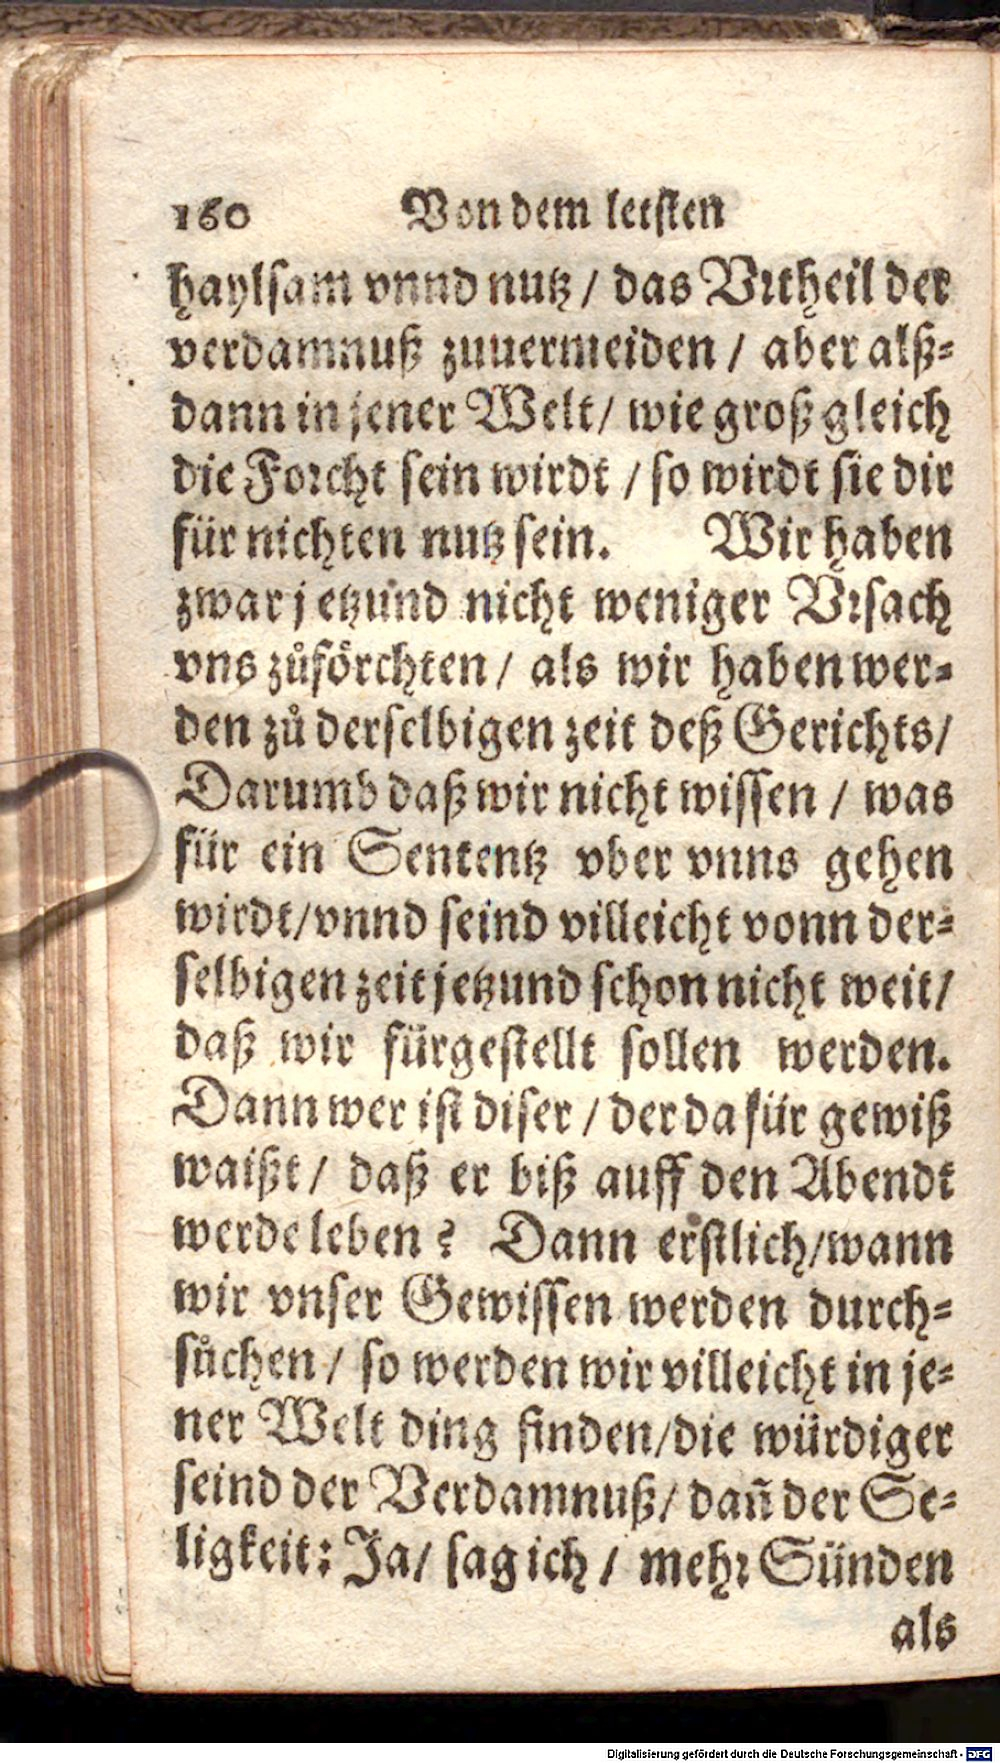 160 Von dem letsten
haylsam vnnd nutz / das Vrtheil der
verdamnuß zuuermeiden / aber alß-
dann in jener Welt / wie groß gleich
die Forcht sein wirdt / so wirdt sie dir
für nichten nutz sein. Wir haben
zwar jetzund nicht weniger Vrsach
vns zůförchten / als wir haben wer-
den zů derselbigen zeit deß Gerichts /
Darumb daß wir nicht wissen / was
für ein Sententz vber vnns gehen
wirdt / vnnd seind villeicht vonn der-
selbigen zeit jetzund schon nicht weit /
daß wir fürgestellt sollen werden.
Dann wer ist diser / der da für gewiß
waißt / daß er biß auff den Abendt
werde leben? Dann erstlich / wann
wir vnser Gewissen werden durch-
sůchen / so werden wir villeicht in je-
ner Welt ding finden / die würdiger
seind der Verdamnuß / dañ der Se-
ligkeit: Ja / sag ich / mehr Sünden
als
Digitalisierung gefördert durch die Deutsche Forschungsgemeinschaft - DFG